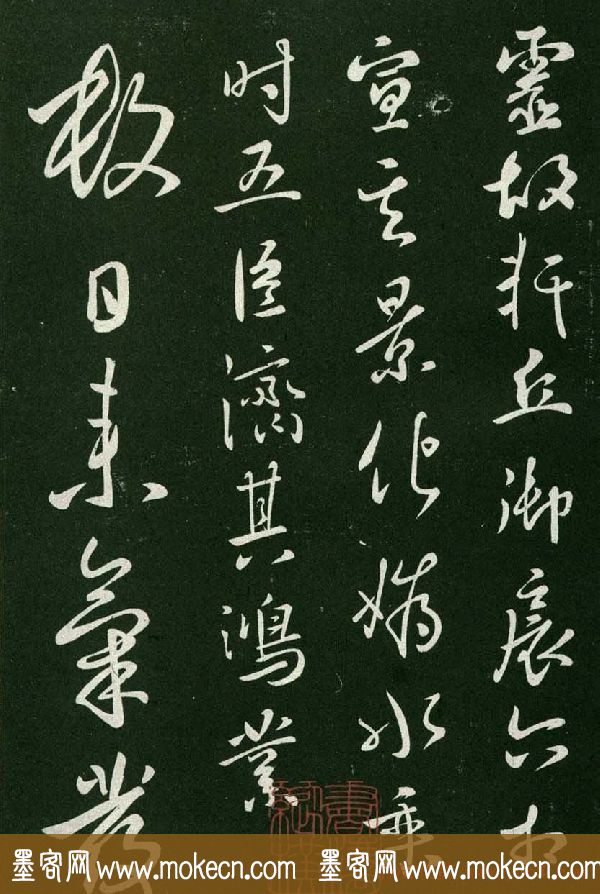 靈故軒丘御扆六相
宣其景化媯水乘
时五臣濟其鴻業
數日來氣發
墨客网 www.mokecn.com 墨客网 www.mokecn.com